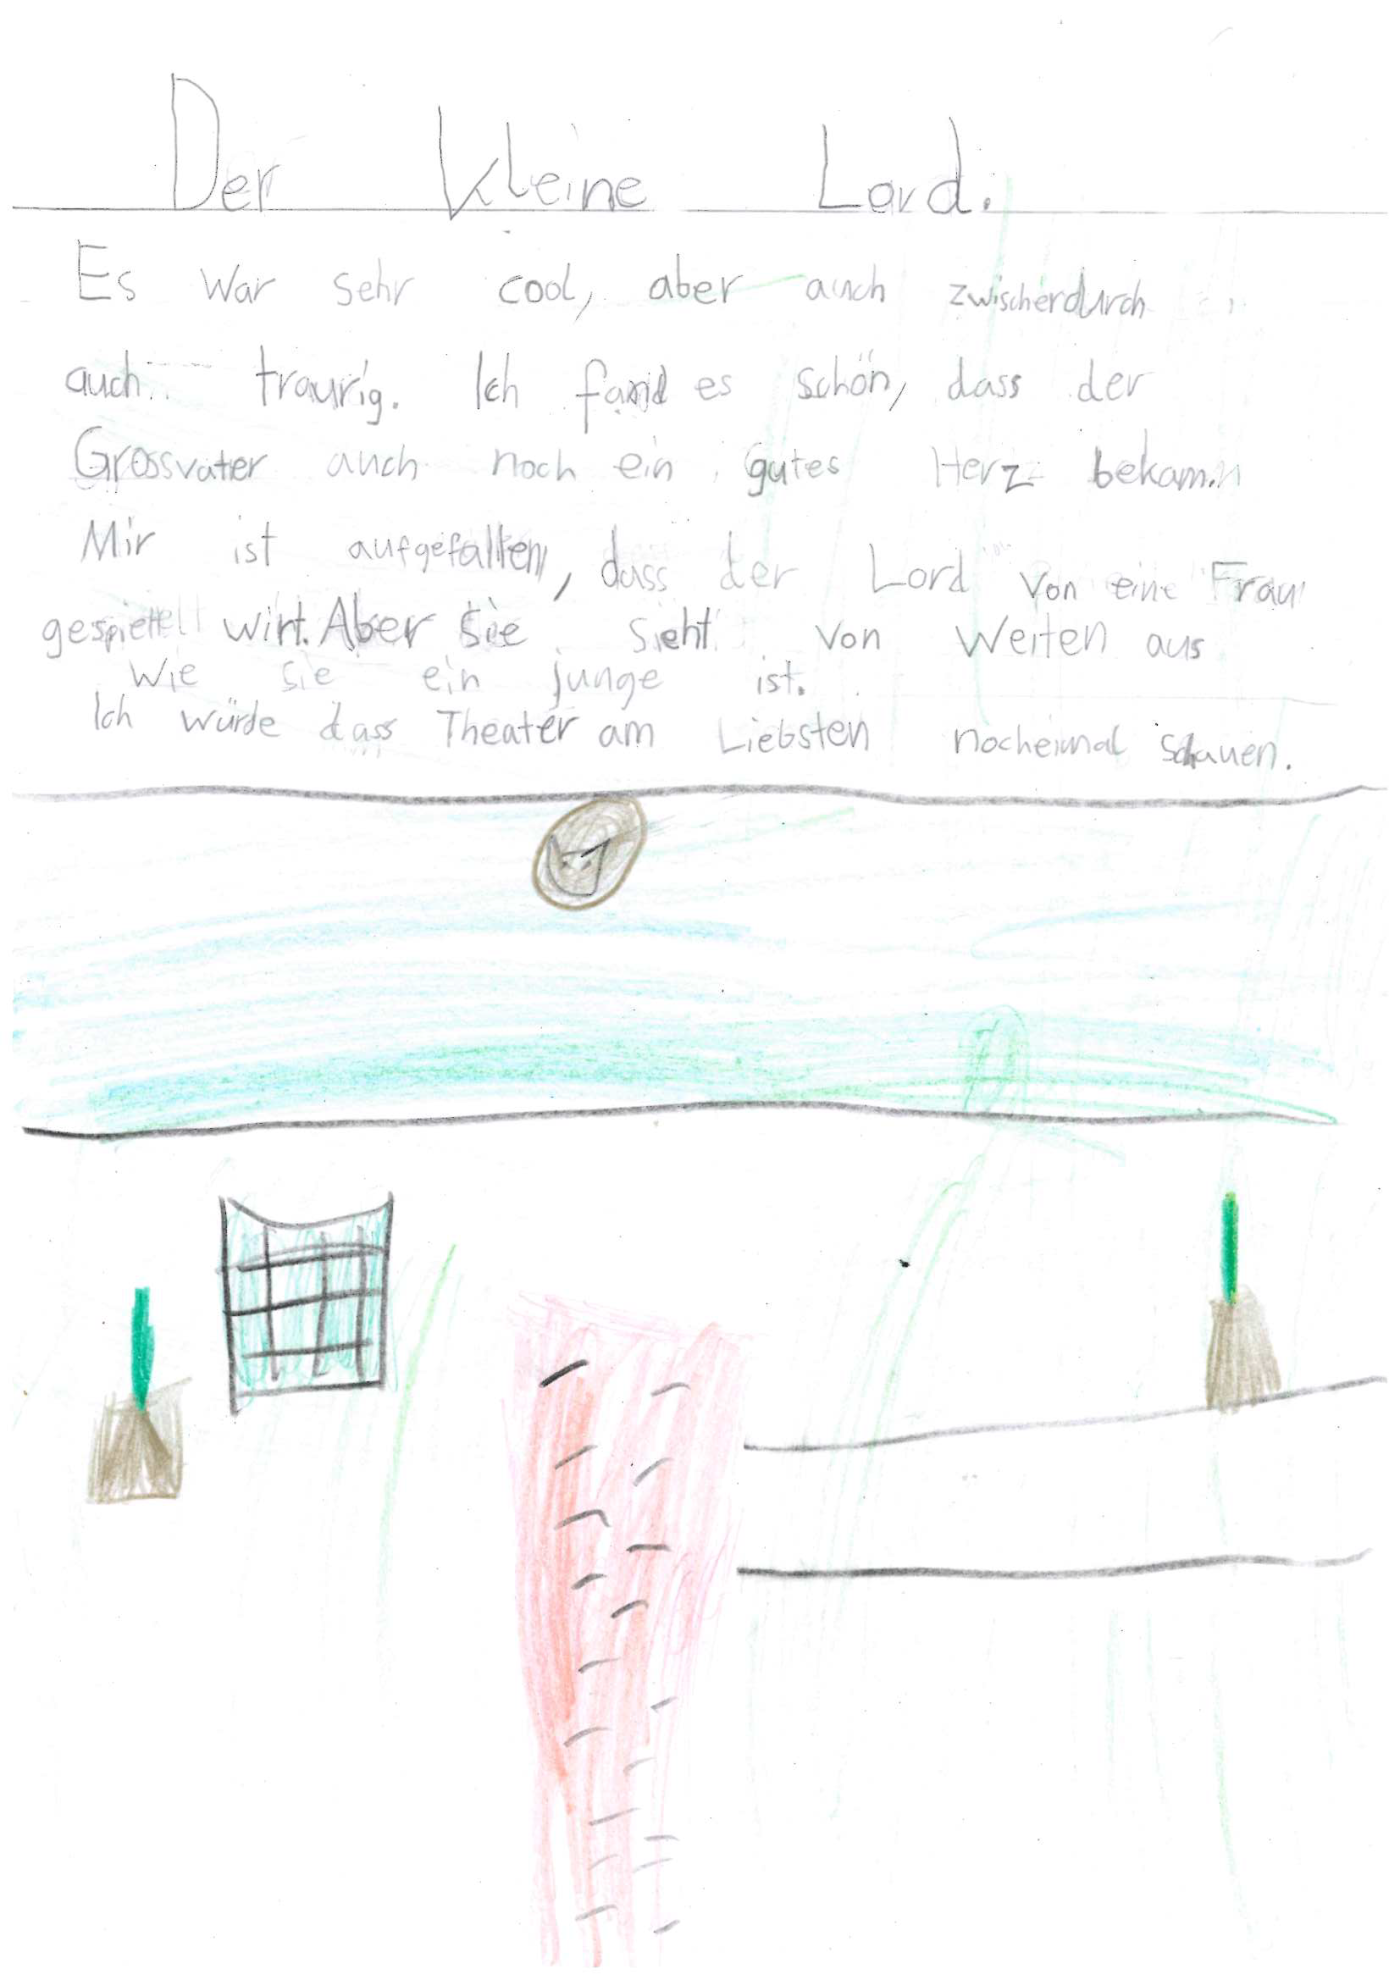 Der kleine Lord.
Es war sehr cool, aber auch zwischerdurch
auch traurig. Ich fand es schön, dass der
Grossvater auch noch ein gutes Herz bekam.
Mir ist aufgefallen, dass der Lord von eine Frau
gespielt wirt. Aber sie sieht von Weiten aus
wie sie ein junge ist.
Ich würde dass Theater am Liebsten nocheimal schauen.